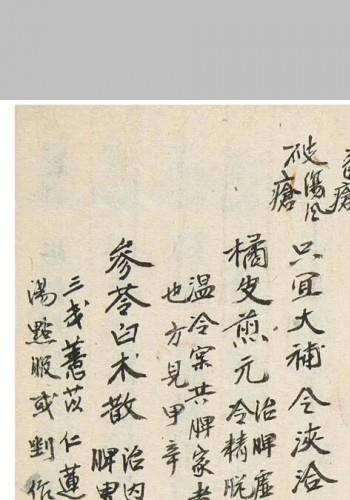 破傷风
瘡
只宜大補今決治
橘皮煎元
治脾虛
冷精脫
温冷宲共脾家者
也方見甲辛
參苓白朮散
治内
脾胃
三戋薏苡仁蓮
湯點服或剉作